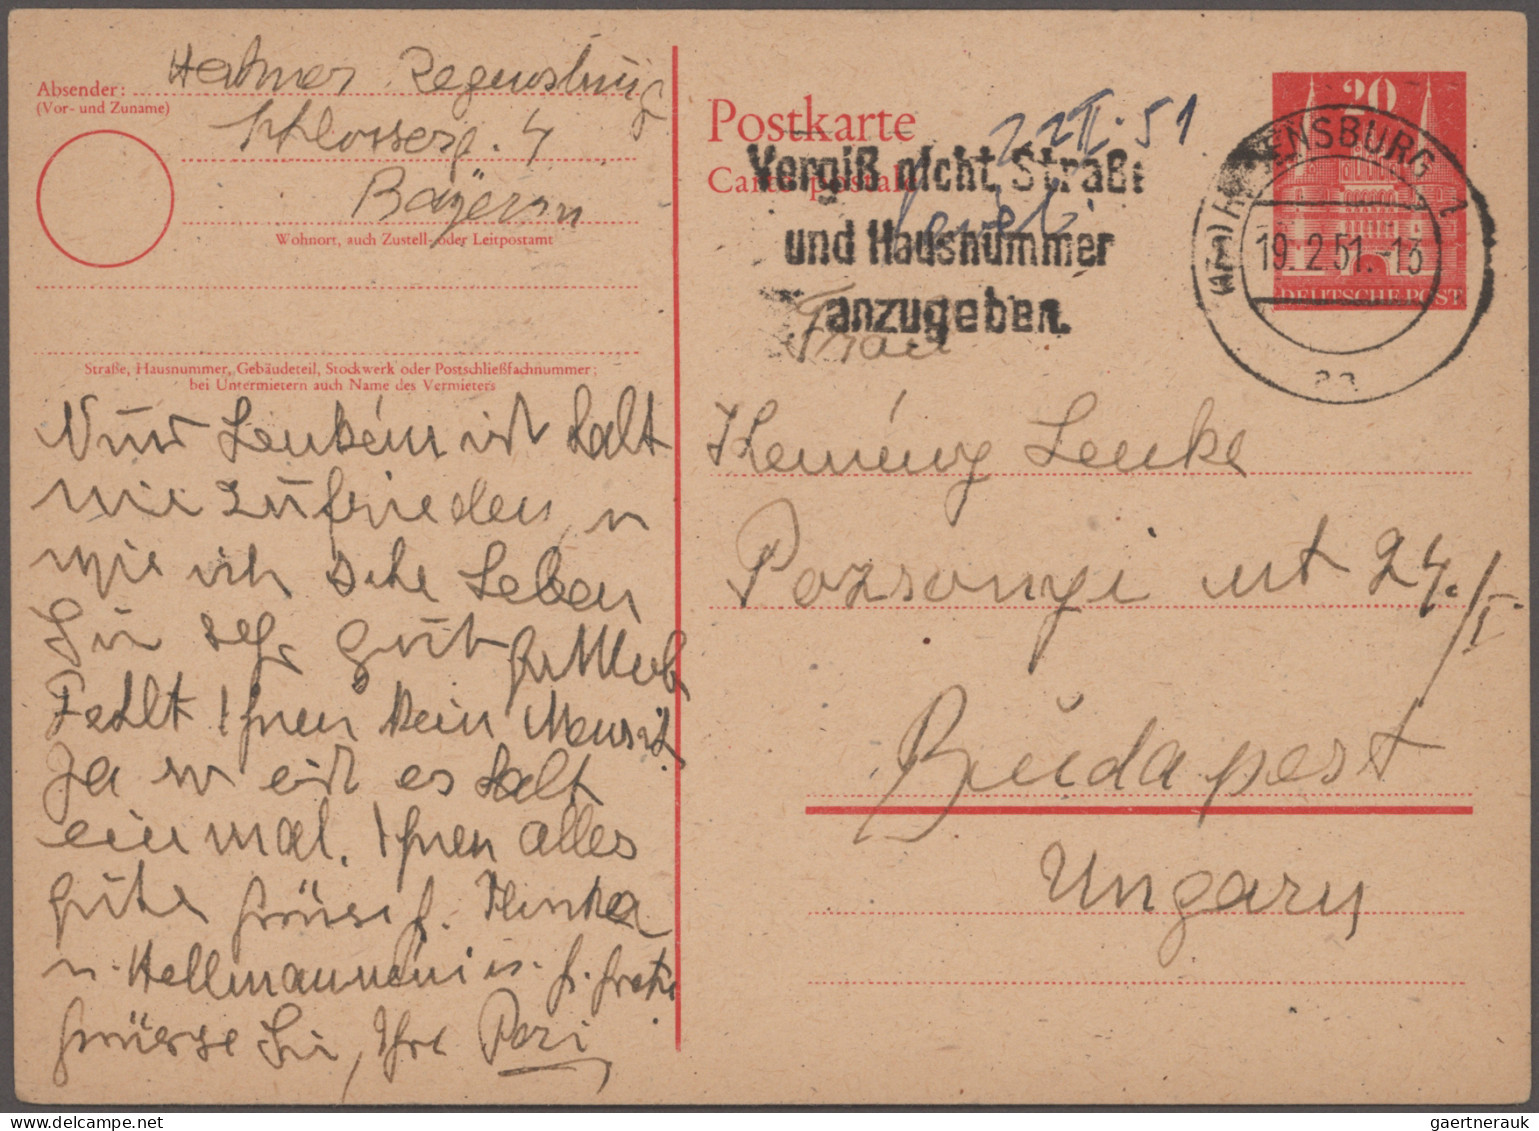 Absender:
(Vor- und Zuname)
Regensburg
Schlosserg. 4
Bayern
Wohnort, auch Zustell- oder Leitpostamt
Straße, Hausnummer, Gebäudeteil, Stockwerk oder Postschließfachnummer;
bei Untermietern auch Name des Vermieters
Nur ist halt
nie zufrieden, u
wie ich sehe Leben
Sie sehr gut
Fehlt Ihnen kein
Ja so ist es halt
einmal. Ihnen alles
gute
u.
Grüsse Sie, Ihre Pezi
Postkarte
Carte postale
22 II. 51
Vergiß nicht, Straße
und Hausnummer
anzugeben.
20
DEUTSCHE POST
REGENSBURG 1
19.2.51.-13
aa
Frau
Kemény Lenke
Pozsonyi ut 24./I
Budapest
Ungarn
gaertnerauk @ delcampe.net